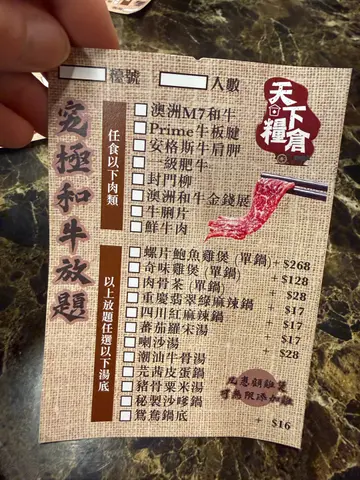 檯號 人數
天下糧倉
究極和牛放題
任食以下肉類
澳洲M7和牛
Prime牛板腱
安格斯牛肩胛
一級肥牛
封門柳
澳洲和牛金錢展
鮮牛肉
以上放題任選以下湯底
螺片鮑魚雞煲 (單鍋) + $268
奇味雞煲 (單鍋) + $128
肉骨茶 (單鍋) $28
重慶翡翠綠麻辣鍋 + $17
四川紅麻辣鍋 + $17
蕃茄羅宋湯 + $17
喇沙湯 $28
潮汕牛骨湯
芫茜皮蛋鍋
豬骨粟米湯
秘製沙嗲鍋
鴛鴦鍋底 + $16
凡惠顧雞煲
可無限添加雞